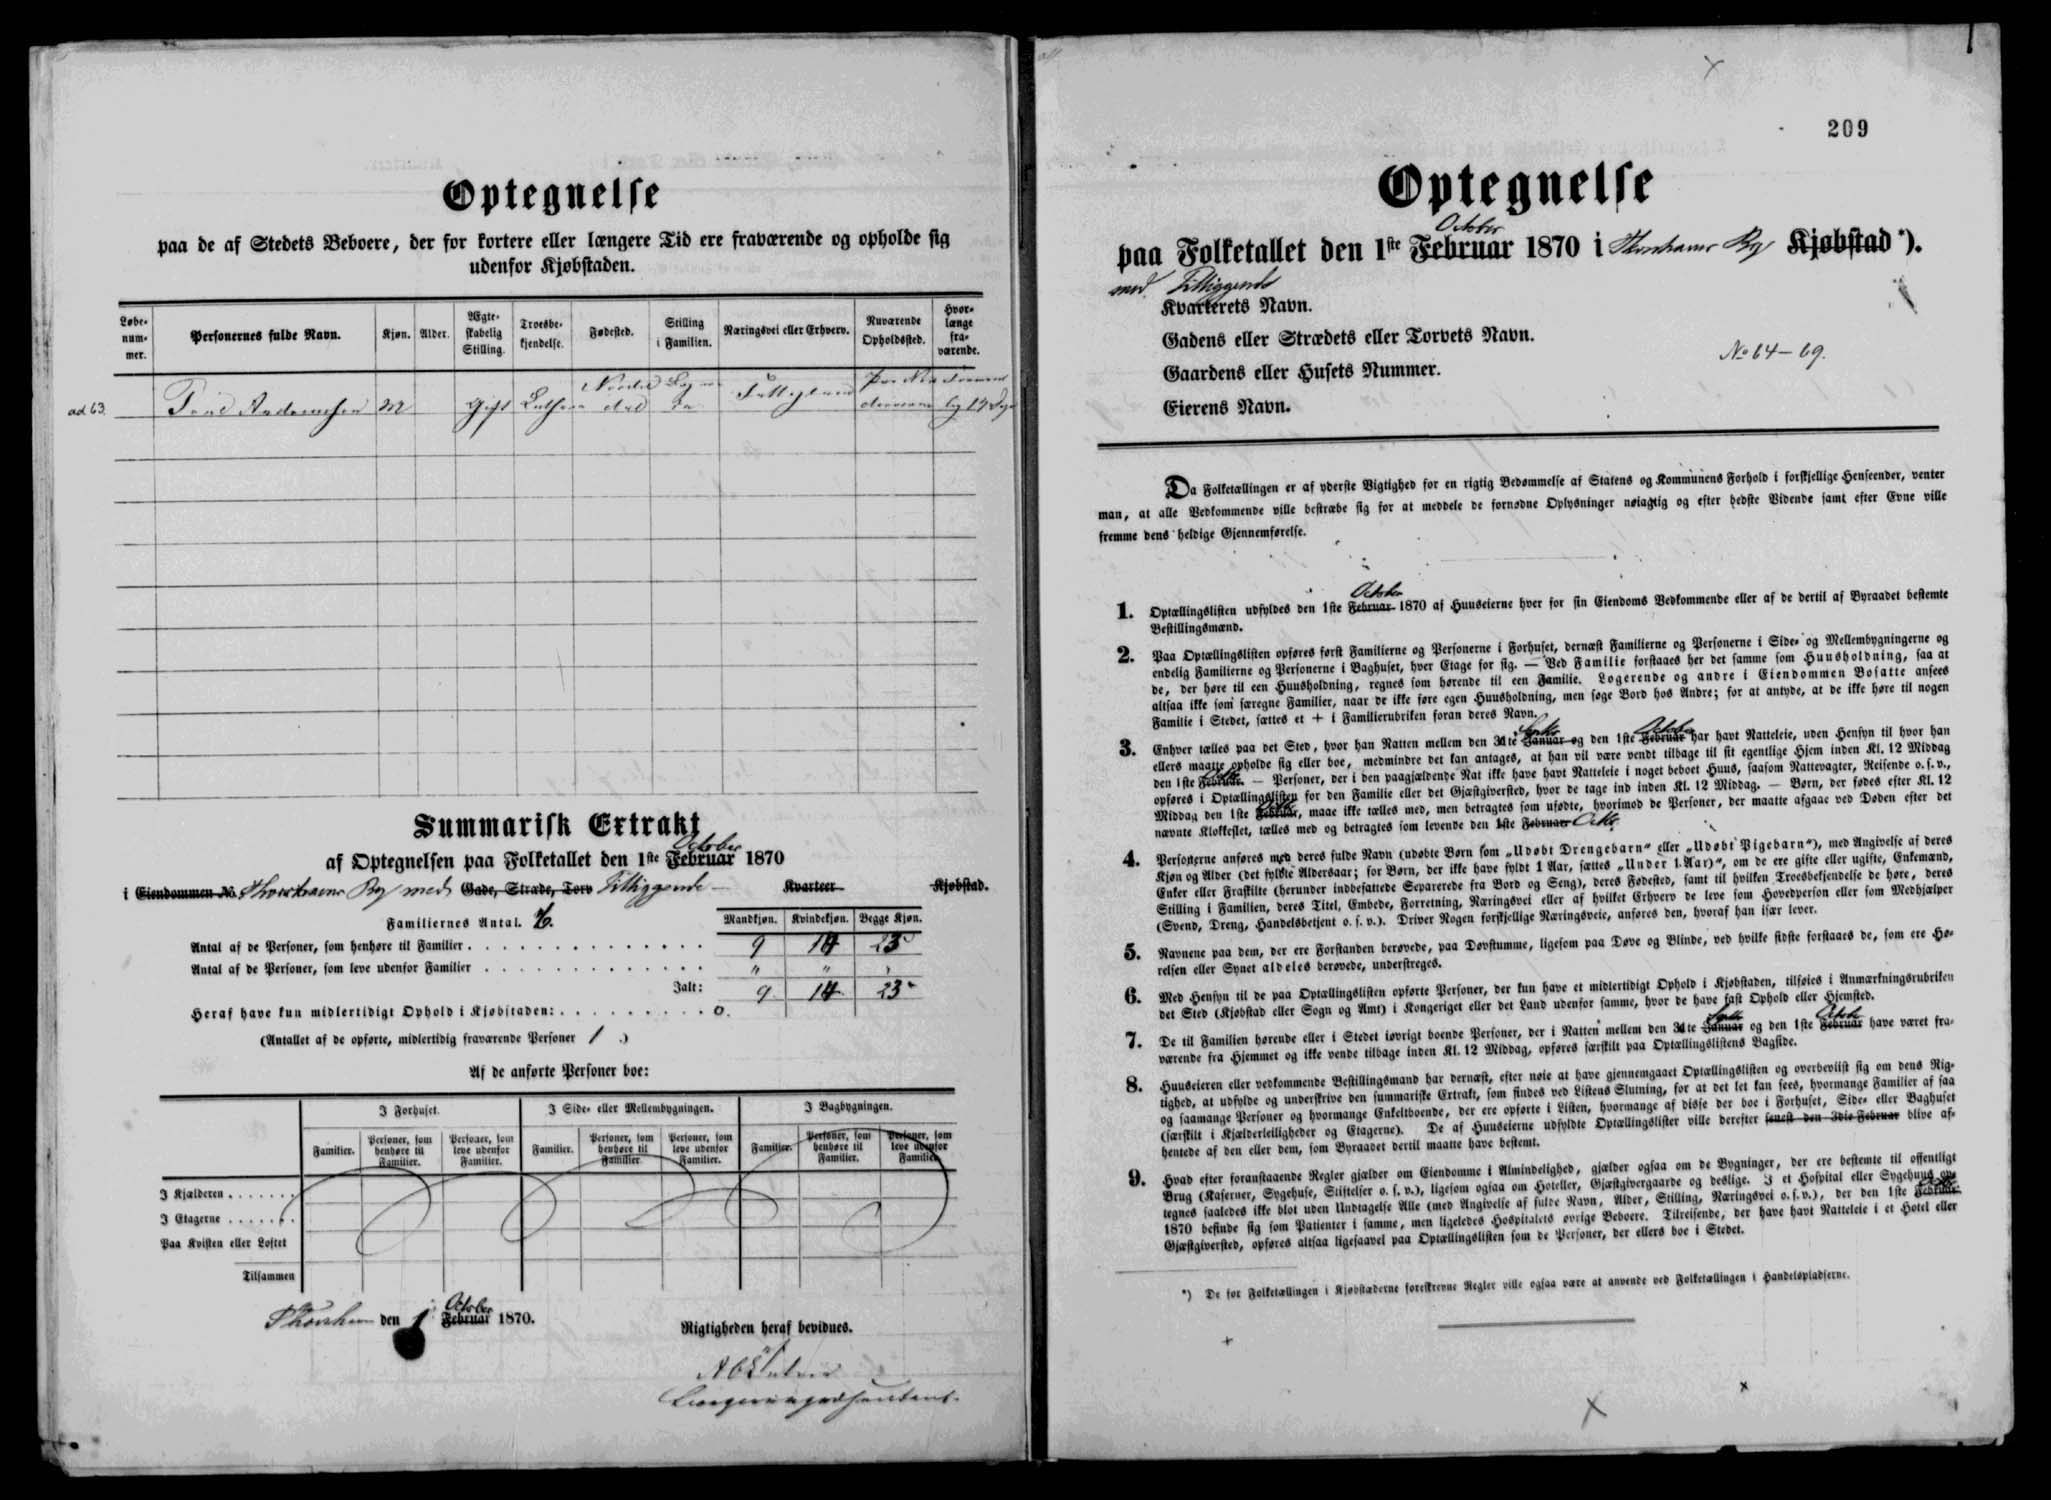 Optegnelse
paa de af Stedets Beboere, der for kortere eller længere Tid ere fraværende og opholde sig
udenfor Kjøbstaden.
Løbe-num-mer. Personernes fulde Navn. Kjøn. Alder. Ægte-skabelig Stilling. Troesbe-kjendelse. Fødested. Stilling i Familien. Næringsvei eller Erhverv. Nuværende Opholdssted. Hvor-længe fra-værende.
ad 63. M Gift Luthersk
Summarisk Extrakt
October
af Optegnelsen paa Folketallet den 1ste Februar 1870
i Eiendommen No. Thorshavns By med Gade, Stræde, Torv Tilliggende Kvarteer Kjøbstad.
Familiernes Antal. 6.
Mandkjøn. Kvindekjøn. Begge Kjøn.
Antal af de Personer, som henhøre til Familier 9 14 23
Antal af de Personer, som leve udenfor Familier " " "
Ialt: 9 14 23
Heraf have kun midlertidigt Ophold i Kjøbstaden: 0.
(Antallet af de opførte, midlertidig fraværende Personer 1.)
Af de anførte Personer boe:
I Forhuset. I Side- eller Mellembygningen. I Bagbygningen.
Familier. Personer, som henhøre til Familier. Personer, som leve udenfor Familier. Familier. Personer, som henhøre til Familier. Personer, som leve udenfor Familier. Familier. Personer, som henhøre til Familier. Personer, som leve udenfor Familier.
I Kjælderen
I Etagerne
Paa Kvisten eller Loftet
Tilsammen
October
Thorshavn den 1 Februar 1870.
Rigtigheden heraf bevidnes.
209
Optegnelse
October
paa Folketallet den 1ste Februar 1870 i Thorshavns By Kjøbstad*).
med Tilliggende
Kvarterets Navn.
Gadens eller Strædets eller Torvets Navn.
Gaardens eller Husets Nummer. No 64-69.
Eierens Navn.
Da Folketællingen er af yderste Vigtighed for en rigtig Bedømmelse af Statens og Kommunens Forhold i forskjellige Henseender, venter
man, at alle Vedkommende ville bestræbe sig for at meddele de fornødne Oplysninger nøiagtig og efter bedste Vidende samt efter Evne ville
fremme dens heldige Gjennemførelse.
October
1. Optællingslisten udfyldes den 1ste Februar 1870 af Huuseierne hver for sin Eiendoms Vedkommende eller af de dertil af Byraadet bestemte
Bestillingsmænd.
2. Paa Optællingslisten opføres først Familierne og Personerne i Forhuset, dernæst Familierne og Personerne i Side- og Mellembygningerne og
endelig Familierne og Personerne i Baghuset, hver Etage for sig. — Ved Familie forstaaes her det samme som Huusholdning, saa at
de, der høre til een Huusholdning, regnes som hørende til een Familie. Logerende og andre i Eiendommen Bosatte ansees
altsaa ikke som særegne Familier, naar de ikke føre egen Huusholdning, men søge Bord hos Andre; for at antyde, at de ikke høre til nogen
Familie i Stedet, sættes et + i Familierubriken foran deres Navn.
Septbr October
3. Enhver tælles paa det Sted, hvor han Natten mellem den 31te Januar og den 1ste Februar har havt Natteleie, uden Hensyn til hvor han
ellers maatte opholde sig eller boe, medmindre det kan antages, at han vil være vendt tilbage til sit egentlige Hjem inden Kl. 12 Middag
den 1ste Februar. — Personer, der i den paagjældende Nat ikke have havt Natteleie i noget beboet Huus, saasom Nattevagter, Reisende o. s. v.,
opføres i Optællingslisten for den Familie eller det Gjæstgiversted, hvor de tage ind inden Kl. 12 Middag. — Børn, der fødes efter Kl. 12
Middag den 1ste Februar, maae ikke tælles med, men betragtes som ufødte, hvorimod de Personer, der maatte afgaae ved Døden efter det
nævnte Klokkeslet, tælles med og betragtes som levende den 1ste Februar Octbr.
4. Personerne anføres med deres fulde Navn (udøbte Børn som „Udøbt Drengebarn“ eller „Udøbt Pigebarn“), med Angivelse af deres
Kjøn og Alder (det fyldte Aldersaar; for Børn, der ikke have fyldt 1 Aar, sættes „Under 1 Aar)“, om de ere gifte eller ugifte, Enkemænd,
Enker eller Fraskilte (herunder indbefattede Separerede fra Bord og Seng), deres Fødested, samt til hvilken Troesbekjendelse de høre, deres
Stilling i Familien, deres Titel, Embede, Forretning, Næringsvei eller af hvilket Erhverv de leve som Hovedperson eller som Medhjælper
(Svend, Dreng, Handelsbetjent o. s. v.). Driver Nogen forskjellige Næringsveie, anføres den, hvoraf han især lever.
5. Navnene paa dem, der ere Forstanden berøvede, paa Døvstumme, ligesom paa Døve og Blinde, ved hvilke sidste forstaaes de, som ere Hø-
relsen eller Synet aldeles berøvede, understreges.
6. Med Hensyn til de paa Optællingslisten opførte Personer, der kun have et midlertidigt Ophold i Kjøbstaden, tilføies i Anmærkningsrubriken
det Sted (Kjøbstad eller Sogn og Amt) i Kongeriget eller det Land udenfor samme, hvor de have fast Ophold eller Hjemsted.
Septbr Octobr
7. De til Familien hørende eller i Stedet iøvrigt boende Personer, der i Natten mellem den 31te Januar og den 1ste Februar have været fra-
værende fra Hjemmet og ikke vende tilbage inden Kl. 12 Middag, opføres særskilt paa Optællingslistens Bagside.
8. Huuseieren eller vedkommende Bestillingsmand har dernæst, efter nøie at have gjennemgaaet Optællingslisten og overbeviist sig om dens Rig-
tighed, at udfylde og underskrive den summariske Extrakt, som findes ved Listens Slutning, for at det let kan sees, hvormange Familier af saa
og saamange Personer og hvormange Enkeltboende, der ere opførte i Listen, hvormange af disse der boe i Forhuset, Side- eller Baghuset
(særskilt i Kjælderleiligheder og Etagerne). De af Huuseierne udfyldte Optællingslister ville derefter senest den 3die Februar blive af-
hentede af den eller dem, som Byraadet dertil maatte have bestemt.
9. Hvad efter foranstaaende Regler gjælder om Eiendomme i Almindelighed, gjælder ogsaa om de Bygninger, der ere bestemte til offentligt
Brug (Kaserner, Sygehuse, Stiftelser o. s. v.), ligesom ogsaa om Hoteller, Gjæstgivergaarde og deslige. I et Hospital eller Sygehuus op-
tegnes saaledes ikke blot uden Undtagelse Alle (med Angivelse af fulde Navn, Alder, Stilling, Næringsvei o. s. v.), der den 1ste Februar
1870 befinde sig som Patienter i samme, men ligeledes Hospitalets øvrige Beboere. Tilreisende, der have havt Natteleie i et Hotel eller
Gjæstgiversted, opføres altsaa ligesaavel paa Optællingslisten som de Personer, der ellers boe i Stedet.
*) De for Folketællingen i Kjøbstæderne foreskrevne Regler ville ogsaa være at anvende ved Folketællingen i Handelspladserne.